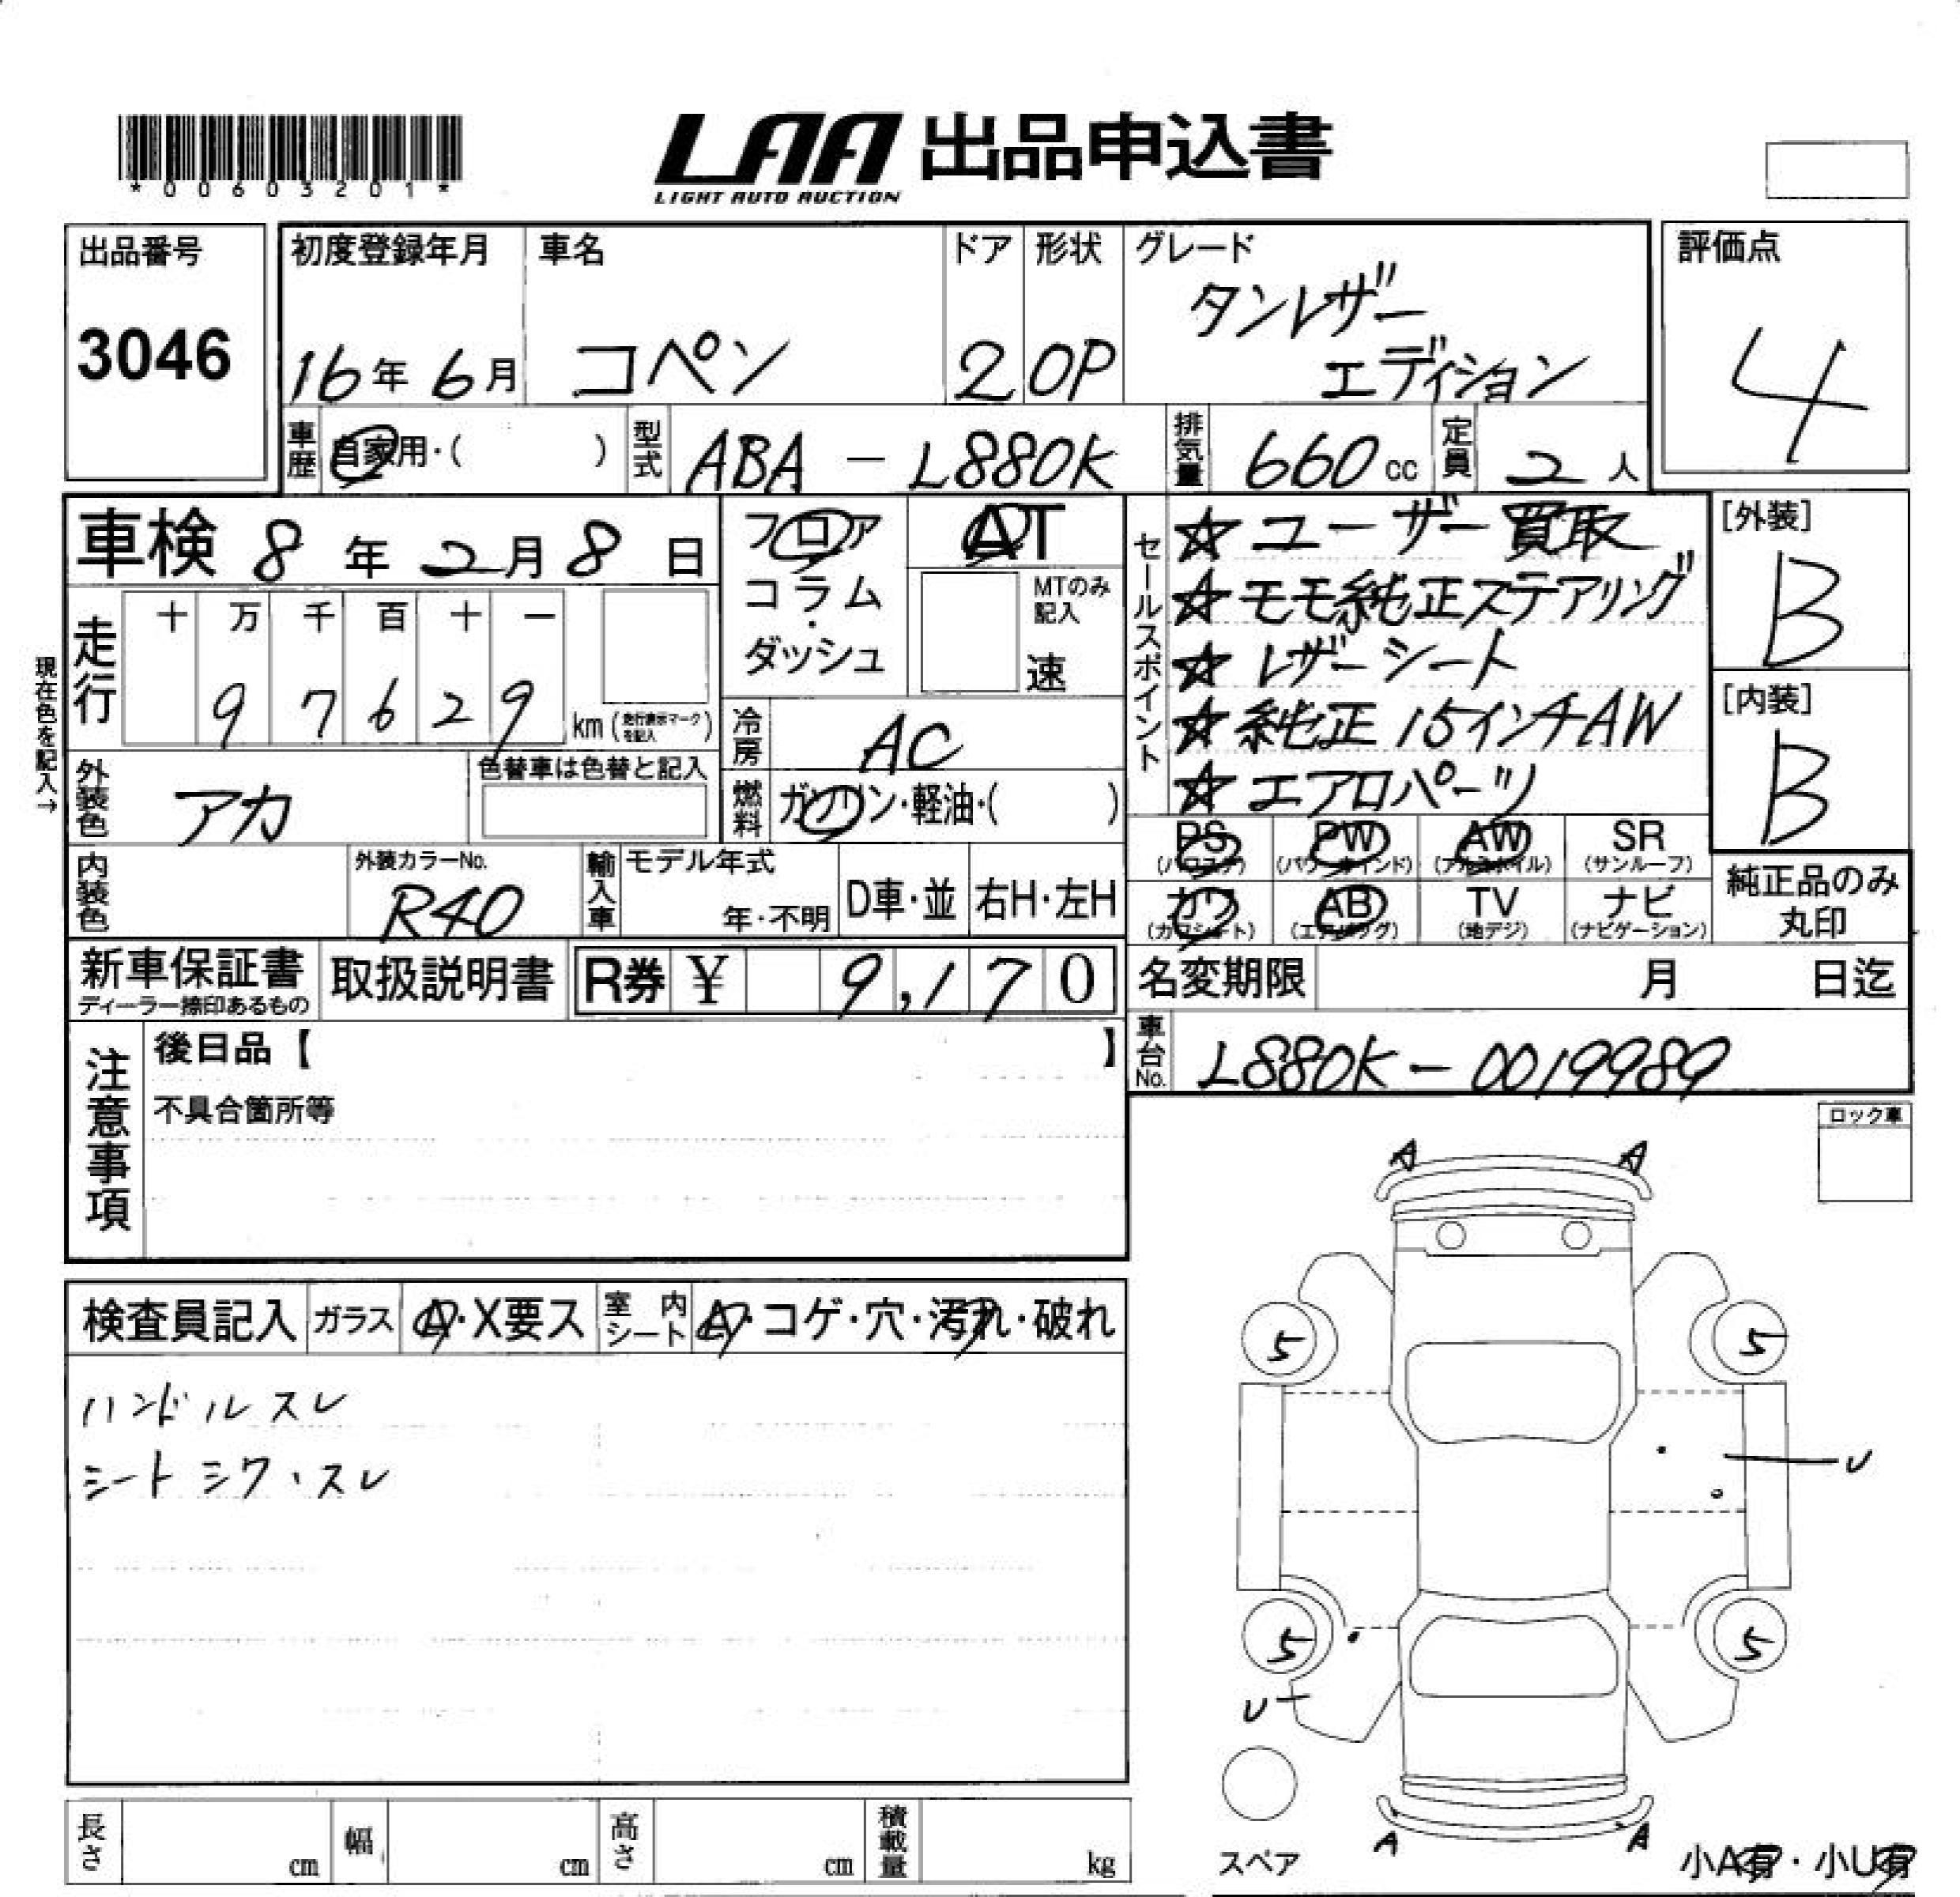 *00603201*
LAA 出品申込書
LIGHT AUTO AUCTION
出品番号 3046
初度登録年月 16年 6月
車名 コペン
ドア 2
形状 OP
グレード タンレザー
エディション
評価点 4
車歴 自家用・( )
型式 ABA - L880K
排気量 660cc
定員 2人
車検 8年 2月 8日
フロア
コラム・
ダッシュ
AT
MTのみ
記入
速
セールスポイント
☆ユーザー買取
☆モモ純正ステアリング
☆レザーシート
☆純正15インチAW
☆エアロパーツ
[外装] B
[内装] B
現在色を記入→
走行 十 万 千 百 十 一
9 7 6 2 9 km (走行表示マークを記入)
冷房 AC
外装色 アカ
色替車は色替と記入
燃料 ガソリン・軽油・( )
内装色
外装カラーNo. R40
輸入車 モデル年式
年・不明
D車・並
右H・左H
PS (パワステ)
PW (パワーウインド)
AW (アルミホイル)
SR (サンルーフ)
カワ (カワシート)
AB (エアバッグ)
TV (地デジ)
ナビ (ナビゲーション)
純正品のみ
丸印
新車保証書
ディーラー捺印あるもの
取扱説明書
R券 ¥ 9,170
名変期限 月 日迄
車台No. L880K-0019989
注意事項
後日品【 】
不具合箇所等
ロック車
検査員記入
ガラス A・X要ス
室内シート A・コゲ・穴・汚れ・破れ
ハンドル スレ
シート シワ・スレ
A A
5 5
U
5 5
U
A A
スペア
小A有・小U有
長さ cm
幅 cm
高さ cm
積載量 kg